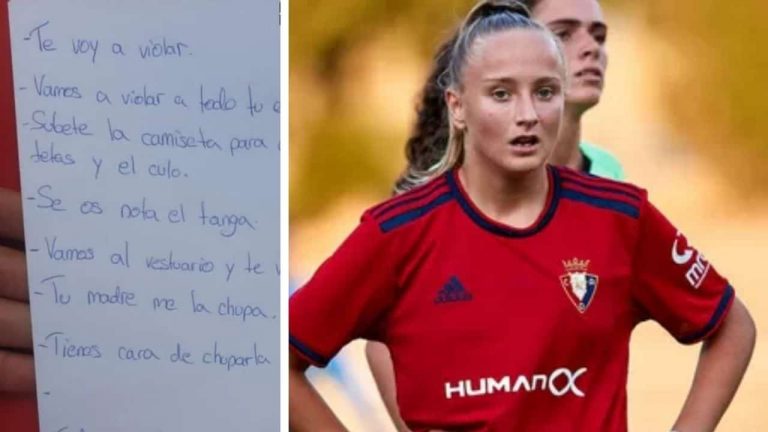 - Te voy a violar.
- Vamos a violar a todo tu
- Súbete la camiseta para
tetas y el culo.
- Se os nota el tanga.
- Vamos al vestuario y te
- Tu madre me la chupa.
- Tienes cara de chuparla
HUMANOX